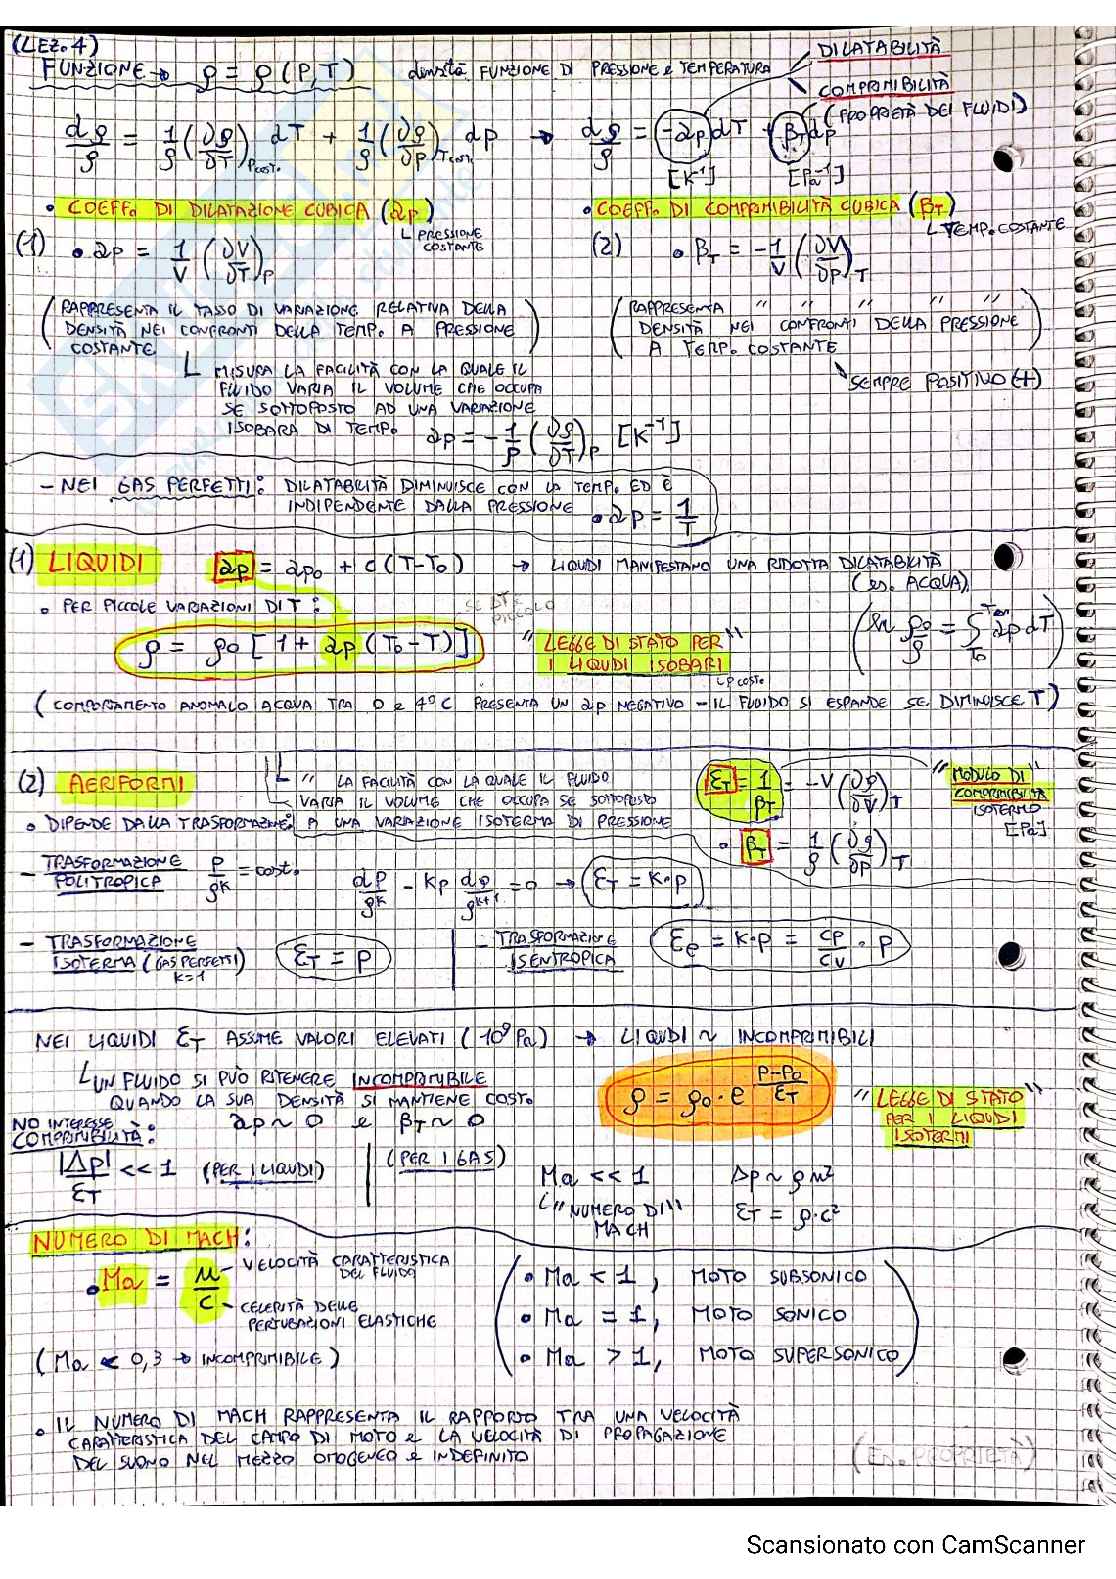 (LEZ. 4)
FUNZIONE → ρ = ρ (P, T) densità FUNZIONE DI PRESSIONE e TEMPERATURA
DILATABILITÀ
COMPRIMIBILITÀ
(PROPRIETÀ DEI FLUIDI)
dρ/ρ = 1/ρ (∂ρ/∂T)Pcost. dT + 1/ρ (∂ρ/∂p)Tcost. dp → dρ/ρ = -αp dT + βT dp
[K⁻¹] [Pa⁻¹]
• COEFF. DI DILATAZIONE CUBICA (αp) • COEFF. DI COMPRIMIBILITÀ CUBICA (βT)
└ PRESSIONE COSTANTE └ TEMP. COSTANTE
(1) • αp = 1/V (∂V/∂T)P (2) • βT = -1/V (∂V/∂p)T
(RAPPRESENTA IL TASSO DI VARIAZIONE RELATIVA DELLA
DENSITÀ NEI CONFRONTI DELLA TEMP. A PRESSIONE
COSTANTE)
(RAPPRESENTA " " " " "
DENSITÀ NEI CONFRONTI DELLA PRESSIONE
A TEMP. COSTANTE)
SEMPRE POSITIVO (+)
└ MISURA LA FACILITÀ CON LA QUALE IL
FLUIDO VARIA IL VOLUME CHE OCCUPA
SE SOTTOPOSTO AD UNA VARIAZIONE
ISOBARA DI TEMP.
αp = -1/ρ (∂ρ/∂T)P [K⁻¹]
- NEI GAS PERFETTI: DILATABILITÀ DIMINUISCE CON LA TEMP. ED È
INDIPENDENTE DALLA PRESSIONE • αp = 1/T
(1) LIQUIDI αp = αp₀ + c (T-T₀) → LIQUIDI MANIFESTANO UNA RIDOTTA DILATABILITÀ
(es. ACQUA)
• PER PICCOLE VARIAZIONI DI T:
SE ΔT È PICCOLO
ρ = ρ₀ [1 + αp (T₀-T)] "LEGGE DI STATO PER
I LIQUIDI ISOBARI"
└ p cost.
(COMPORTAMENTO ANOMALO ACQUA TRA 0 e 4°C PRESENTA UN αp NEGATIVO - IL FLUIDO SI ESPANDE SE DIMINUISCE T)
(2) AERIFORMI
└ " LA FACILITÀ CON LA QUALE IL FLUIDO
VARIA IL VOLUME CHE OCCUPA SE SOTTOPOSTO
A UNA VARIAZIONE ISOTERMA DI PRESSIONE
εT = 1/βT = -V (∂p/∂V)T
"MODULO DI
COMPRIMIBILITÀ
ISOTERMO"
[Pa]
• DIPENDE DALLA TRASFORMAZIONE:
• βT = 1/ρ (∂ρ/∂p)T
- TRASFORMAZIONE
POLITROPICA P/ρᵏ = cost. dP/ρᵏ - Kp dρ/ρᵏ⁺¹ = 0 → εT = K·p
- TRASFORMAZIONE
ISOTERMA (GAS PERFETTI)
K=1
εT = P
- TRASFORMAZIONE
ISENTROPICA
εe = K·p = cp/cv · P
NEI LIQUIDI εT ASSUME VALORI ELEVATI (10⁹ Pa) → LIQUIDI ~ INCOMPRIMIBILI
└ UN FLUIDO SI PUÒ RITENERE INCOMPRIMIBILE
QUANDO LA SUA DENSITÀ SI MANTIENE COST.
ρ = ρ₀ · e^((P-P₀)/εT)
"LEGGE DI STATO
PER I LIQUIDI
ISOTERMI"
NO INTERESSE
COMPRIMIBILITÀ: αp ~ 0 e βT ~ 0
|Δp|/εT << 1 (PER I LIQUIDI) (PER I GAS) Ma << 1 Δp ~ ρu²
└ "NUMERO DI
MACH" εT = ρ·c²
NUMERO DI MACH:
• Ma = u/c
- VELOCITÀ CARATTERISTICA
DEL FLUIDO
- CELERITÀ DELLE
PERTUBAZIONI ELASTICHE
• Ma < 1, MOTO SUBSONICO
• Ma = 1, MOTO SONICO
• Ma > 1, MOTO SUPERSONICO
(Ma < 0,3 → INCOMPRIMIBILE)
• IL NUMERO DI MACH RAPPRESENTA IL RAPPORTO TRA UNA VELOCITÀ
CARATTERISTICA DEL CAMPO DI MOTO e LA VELOCITÀ DI PROPAGAZIONE
DEL SUONO NEL MEZZO OMOGENEO e INDEFINITO
Scansionato con CamScanner